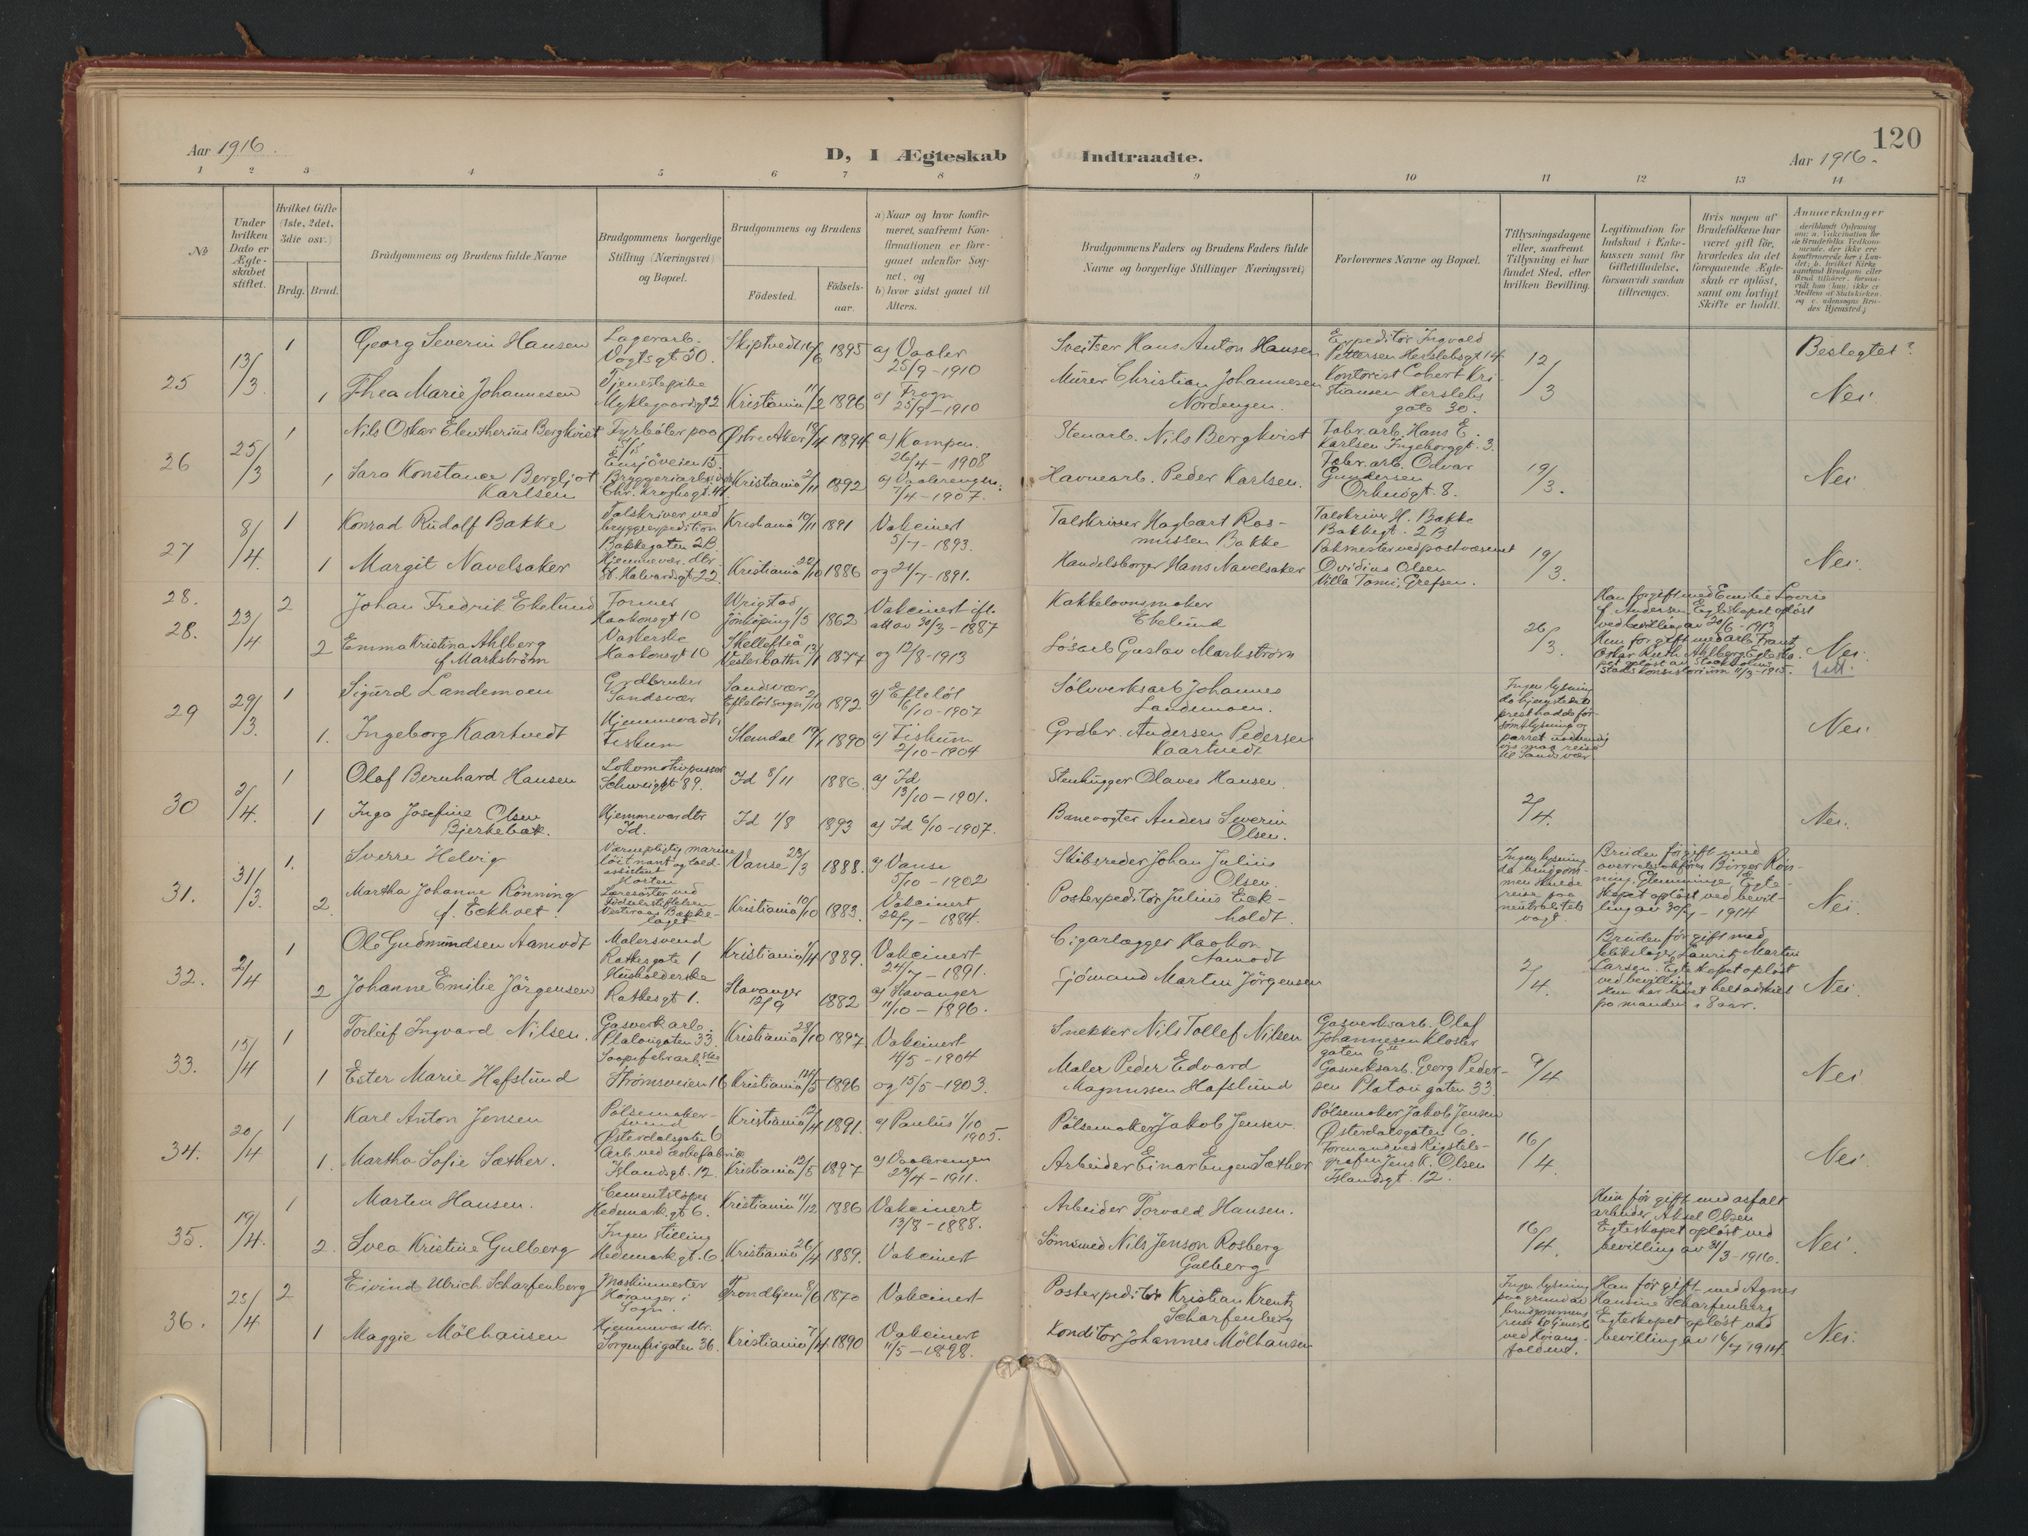 120
Aar 1916.
D, I Ægteskab Indtraadte.
Aar 1916.
1 2 3 4 5 6 7 8 9 10 11 12 13 14
No.
Under hvilken Dato er Ægteskabet stiftet.
Hvilket Gifte (1ste, 2det, 3die osv.)
Brdg. Brud.
Brudgommens og Brudens fulde Navne
Brudgommens borgerlige Stilling (Næringsvei) og Bopæl.
Brudgommens og Brudens
Fødested.
Fødselsaar.
a) Naar og hvor konfirmeret, saafremt Konfirmationen er foregaaet udenfor Sognet, og
b) hvor sidst gaaet til Alters.
Brudgommens Faders og Brudens Faders fulde Navne og borgerlige Stillinger Næringsvei)
Forlovernes Navne og Bopæl.
Tillysningsdagene eller, saafremt Tillysning ei har fundet Sted, efter hvilken Bevilling.
Legitimation for Indskud i Enkekassen samt for Giftetilladelse, forsaavidt saadan tiltrænges.
Hvis nogen af Brudefolkene har været gift før, hvorledes da det foregaaende Ægteskab er opløst, samt om lovligt Skifte er holdt.
Anmærkninger
25 13/3 1 Georg Severin Hansen Lagerarb. Vogtsgt 50. Skiptvedt 16/6 1895 a) Vaaler 25/9 - 1910 Sveitser Hans Anton Hansen Expeditør Ingvald Pettersen Herslebsgt 14 12/3 Beslegtet?
1 Thea Marie Johannesen Tjenestepike Myklegaardsgt 2 Kristiania 11/2 1896 a) Frogn 25/9 - 1910 Murer Christian Johannesen Nordengen. Kontorist Cobert Kristiansen Herslebsgate 30. Nei
26 25/3 1 Nils Oskar Elentherius Bergkvist Fyrbøter paa Ensjøveien 15. Østre Aker 1894 a) Kampen 26/4 - 1908 Stenarb. Nils Bergkvist Fabr. arb. Hans E. Karlsen Ingeborggt. 3. 19/3.
1 Sara Konstance Bergljot Karlsen Bryggeriarb. Chr. Kroghsgt. 41 Kristiania 2/11 1892 a) Vaalerengen. 7/4 - 1907. Havnearb. Peder Karlsen. Fabr. arb. Odvar Gundersen Orknøgt. 8. Nei
27 8/4. 1 Konrad Rudolf Bakke Talskriver ved bryggeexpedition Bakkegaten 2B Kristiania 10/11 1891 Vakcinert 5/7 - 1893. Talskriver Hagbart Rasmussen Bakke Talskriver H. Bakke Bakkegt. 2B 19/3.
1 Margit Navelsaker Hjemmevær. dtr. St. Halvardsgt 22 Kristiania 22/10 1886 og 21/7 - 1891. Handelsborger Hans Navelsaker Pakmester ved postvæsenet Ovidius Olsen Villa Tomi, Grefsen. Nei.
28.
28. 23/4 2 Johan Fredrik Ekelund Former Haakonsgt 10 Wrigstad Jönköping 11/3 1862 Vakcinert ifl. att av 30/3 - 1887 Kakkelovnsmaker Ekelund 26/3. Han før gift med Emilie Lovise f. Andersen. Egteskapet opløst ved bevilling av 20/6 - 1913
2 Emma Kristina Ahlberg f. Markström Vaskerske Haakonsgt 10 Skellefteå Vesterbotten 13/1 1877 og 12/8 - 1913 Løsarb Gustav Markström Hun før gift med arb. Frantz Oskar Ruth. Ahlberg. Egteskapet opløst av Stockholms Stads konsistorium 11/3 - 1915. Nei.
29 29/3. 1 Sigurd Landemoen Grdbruker Sandsvær Sandsvær Efteløt sogn 2/10 1892 a) Efteløt 6/10 - 1907 Sølvverksarb Johannes Landemoen. Ingen lysning da hjemstedets prest hadde forsømt lysning og parret nødvendigvis maa reise til Sandsvær
1. Ingeborg Kaartvedt Hjemmev. dtr. Fiskum Stemdal 19/1 1890 a) Fiskum 2/10 - 1904 Grdbr. Andersen Pedersen Kaartvedt Nei
30 2/4. 1 Olaf Bernhard Hansen Lokomotivpusser Schweigsgt 89. Id 8/11 1886. a) Id 13/10 - 1901. Stenhugger Olaves Hansen. 2/4.
1 Inga Josefine Olsen Bjerkebæk. Hjemmevær dtr Id. Id 1/8 1893 a) Id 6/10 - 1907. Banevogter Anders Severin Olsen. Nei.
31. 31/3. 1. Sverre Helvig Værnepligtig marine løitnant og toldassistent Horten Vanse 23/3 1888. a) Vanse 5/10 - 1902 Skibsreder Johan Julius Olsen. Ingen lysning da brudgommen skulde reise paa neutralitetsvagt. Bruden før gift med overretssakfører Birger Rønning, Glemminge. Egteskapet opløst ved bevilling av 30/1 - 1914
2. Martha Johanne Rönning f. Eckholt. Læresøster ved Fødselsstiftelsen Vestre Aker Bækkelaget Kristiania 10/10 1883. Vakcinert 22/7 - 1884. Postexpeditør Julius Eckholdt. Nei
32. 2/4 1 Ole Gudmundsen Aamodt Malersvend Rathesgate 1 Kristiania 1/4 1889. Vakcinert 24/7 - 1891. Cigarlægger Haakon Aamodt 2/4. Bruden før gift med blikslager Lauritz Martin Larsen. Egteskapet opløst ved bevilling. Hun har levet helt adskilt fra manden i 8 aar.
2 Johanne Emilie Jörgensen Husholderske Rathesgt 1. Stavanger 12/9 1882 a) Stavanger 11/10 - 1896. Sjömand Marten Jörgensen Nei.
33. 15/4 1 Torleif Ingvard Nilsen. Gasverk arb. Platougaten 33. Kristiania 28/10 1897. Vakcinert 4/5 - 1904 Snekker Nils Tollef Nilsen Gasverksarb. Olaf Johannesen Klostergaten 6 9/4
1 Ester Marie Hafslund Saapefabrarb.ske Strømsveien 16 Kristiania 24/5 1896 og 15/5 - 1903. Maler Peder Edvard Magnussen Hafslund Gasverksarb. Georg Pedersen Platougaten 33. Nei
34. 20/4 1 Karl Anton Jensen Pølsemakersvend Østerdalsgaten 6 Kristiania 12/4 1891. a) Paulus 1/10 1905. Pølsemaker Jakob Jensen. Pølsemaker Jakob Jensen Østerdalsgaten 6. 16/4.
1. Martha Sofie Sæther. Arb. ved æskefabrik Islandsgt. 12. Kristiania 12/5 1897 a) Vaalerengen 23/4 - 1911. Arbeider Einar Eugen Sæther Formand ved Rigstelegrafen Jens K. Olsen Islandsgt. 12. Nei
35. 19/4. 1 Martin Hansen. Cementstøper Hedemarksgt 6. Kristiania 11/12 1886 Vakcinert 13/8 - 1888. Arbeider Torvald Hansen. 16/4. Hun før gift med asfaltarbeider Aksel Olsen Egteskapet opløst ved bevilling av 31/3 - 1916.
2. Svea Kristine Gulberg Ingen stilling Hedemarkgt. 6 Kristiania 26/4 1889. Vakcinert Sømsmed Nils Jenson Rosberg Gulberg Nei.
36. 25/4 2 Eivind Ulrich Scharfenberg Maskinmester Høianger i Sogn. Trondhjem 8/6 1870 Vakcinert Postexpeditør Kristian Krentz Scharfenberg Ingen lysning paa grund av brudgommens reise til tjeneste ved Høiangfaldene. Han før gift med Agnes Hansine Scharfenberg Egteskapet opløst ved bevilling av 16/7 1914.
1 Maggie Mölhausen Hjemmevær. dtr. Sorgenfrigaten 36. Kristiania 7/4 1890 Vakcinert 11/5 - 1898. Konditor Johannes Mølhausen Nei.